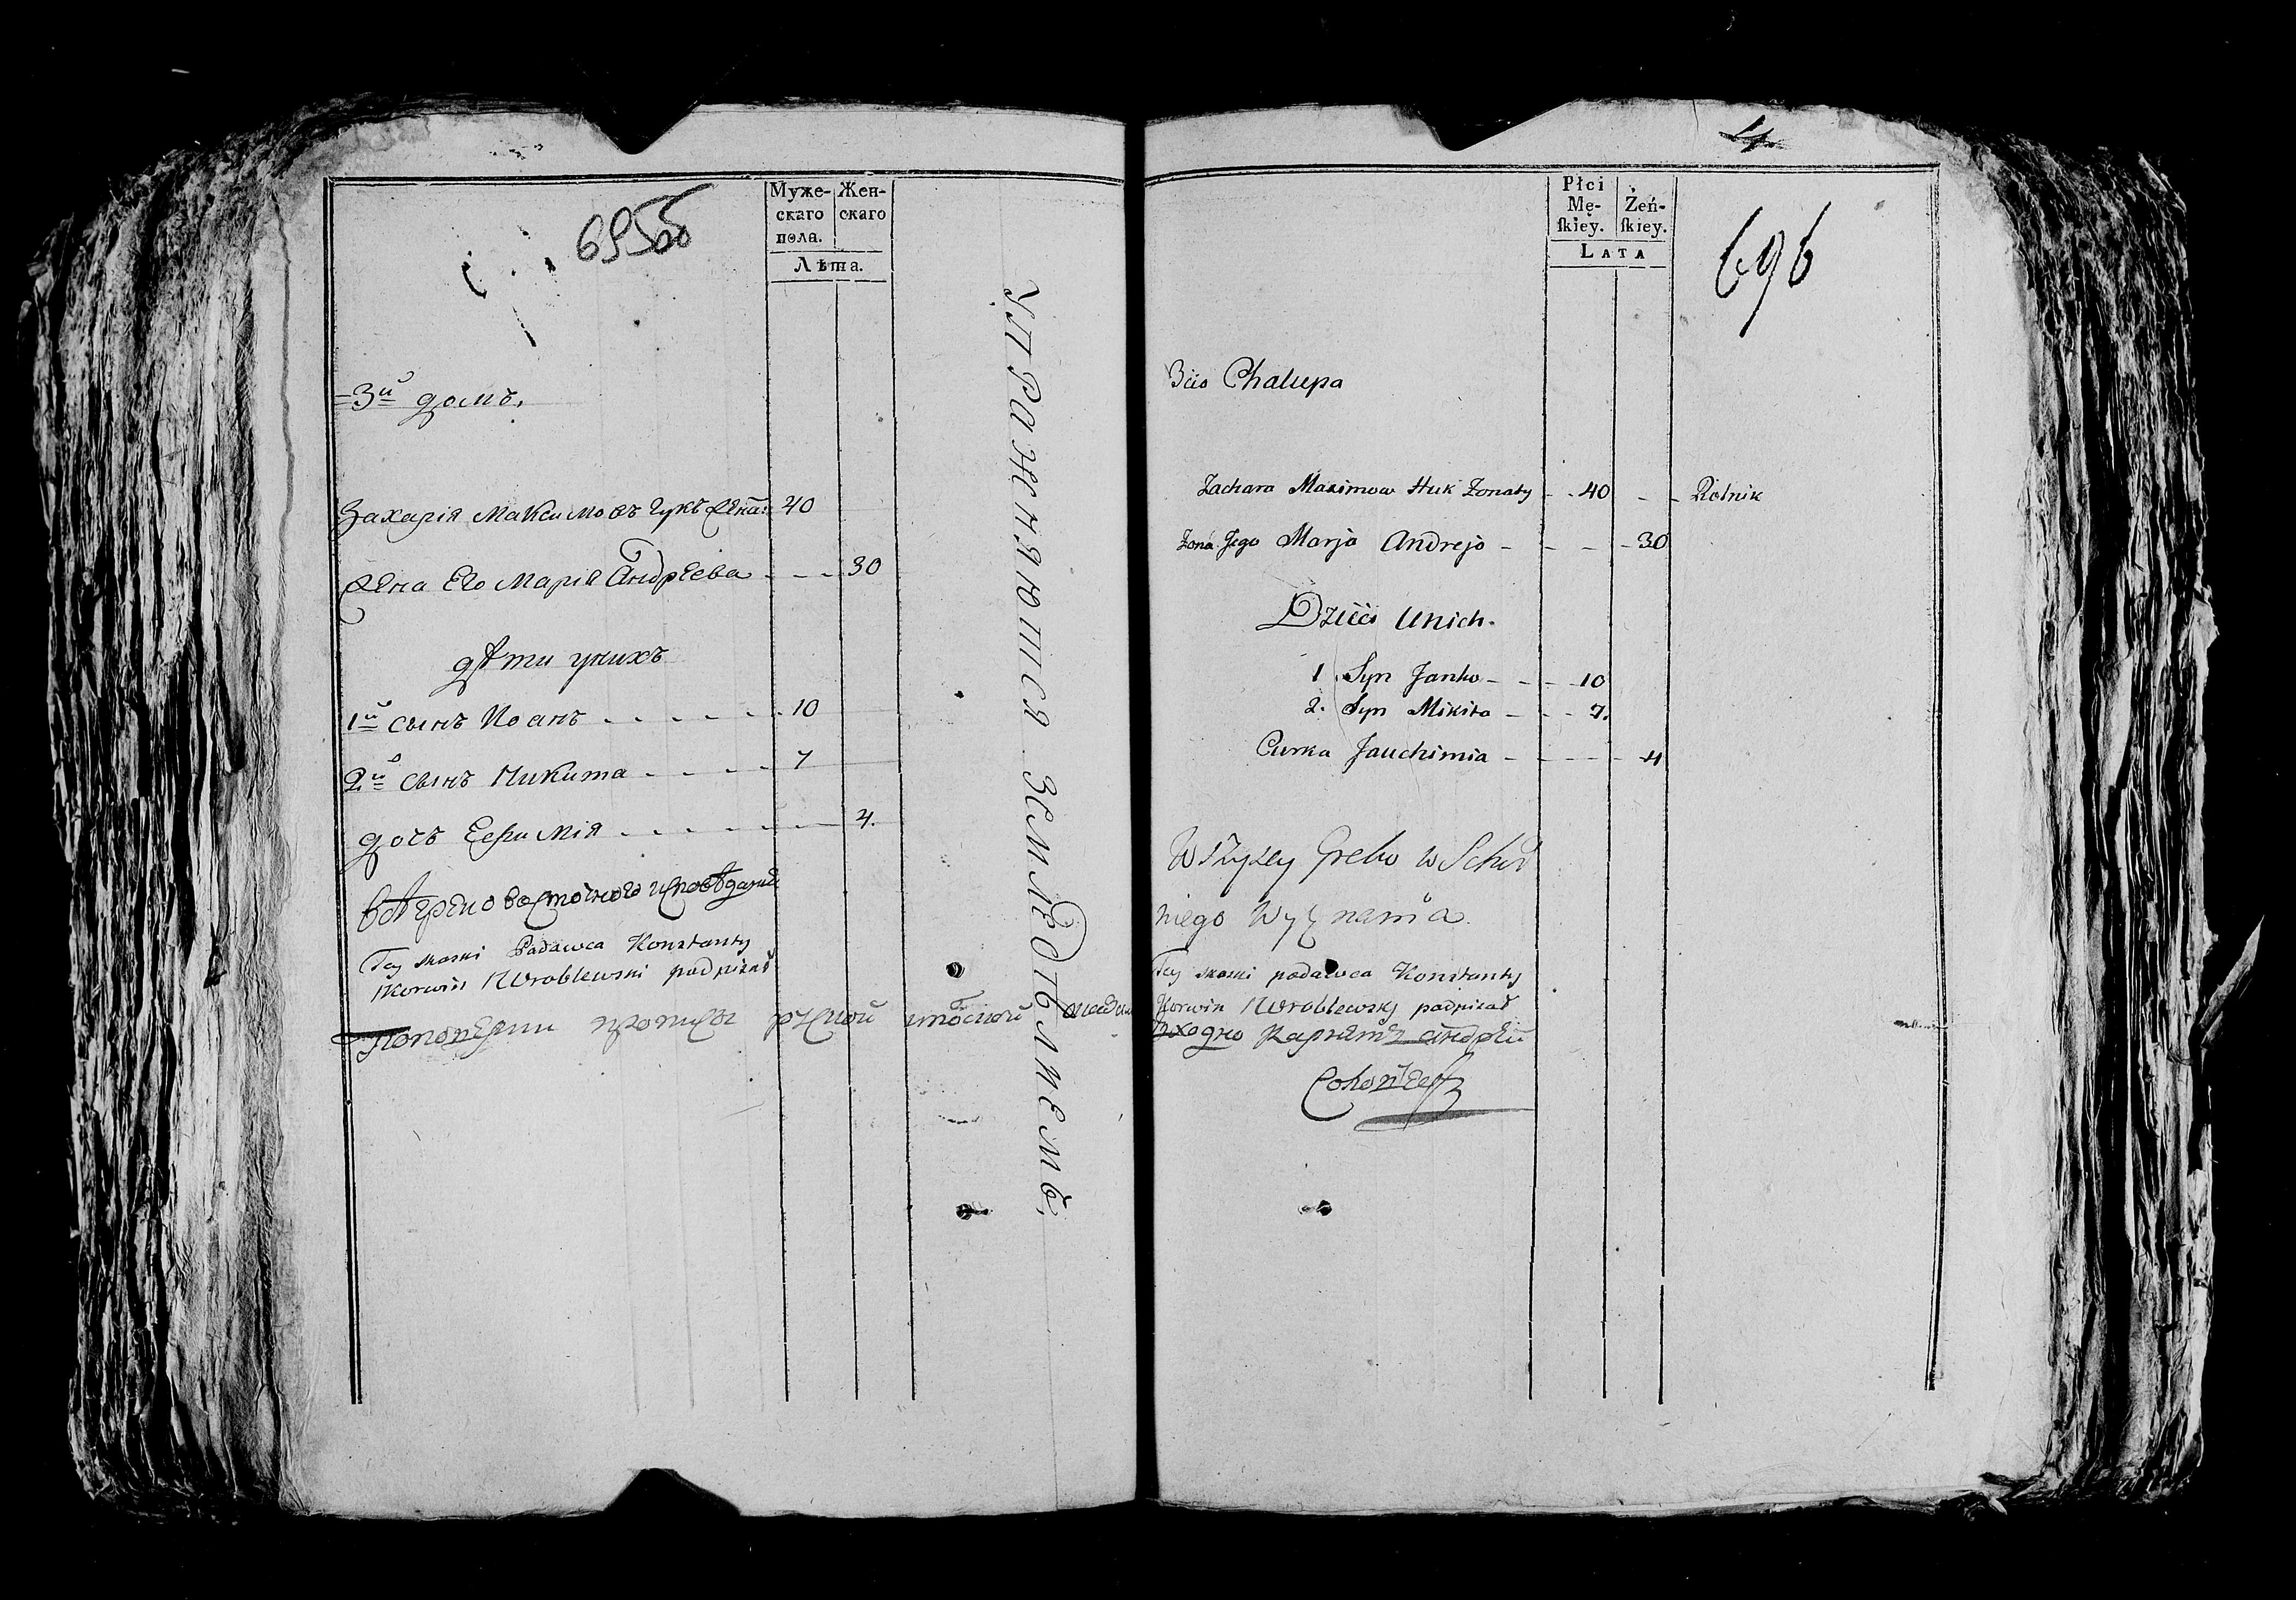 Муже- Жен-
скаго скаго
пола.
Лѣта.
3й домъ.
Захарія Максимовъ Гукъ жена: 40
жена Его Марія Андрѣева - - - 30
дѣти унихъ
1й сынъ Иоанъ - - - - - - 10
2й сынъ Никита - - - - - 7
дочь Ефимія - - - - - - 4.
Tey skaski Padawca Konstanty
Korwin Wroblewski podpisał
упражняются земледѣлиемъ
4
696
Płci
Mę- Żeń-
skiey. skiey.
LATA
3cia Chalupa
Zachara Maximow Huk Zonaty - - 40 - - Rolnik
Zona Jego Marja Andreja - - - - 30
Dzieci Unich.
1 Syn Janko - - - 10
2. Syn Mikita - - - 7.
Curka Jauchimia - - - - - 4
Wszyscy Greko wSchod
niego Wyznania
Tey skaski podawca Konstanty
Korwin Wroblewsky podpisał